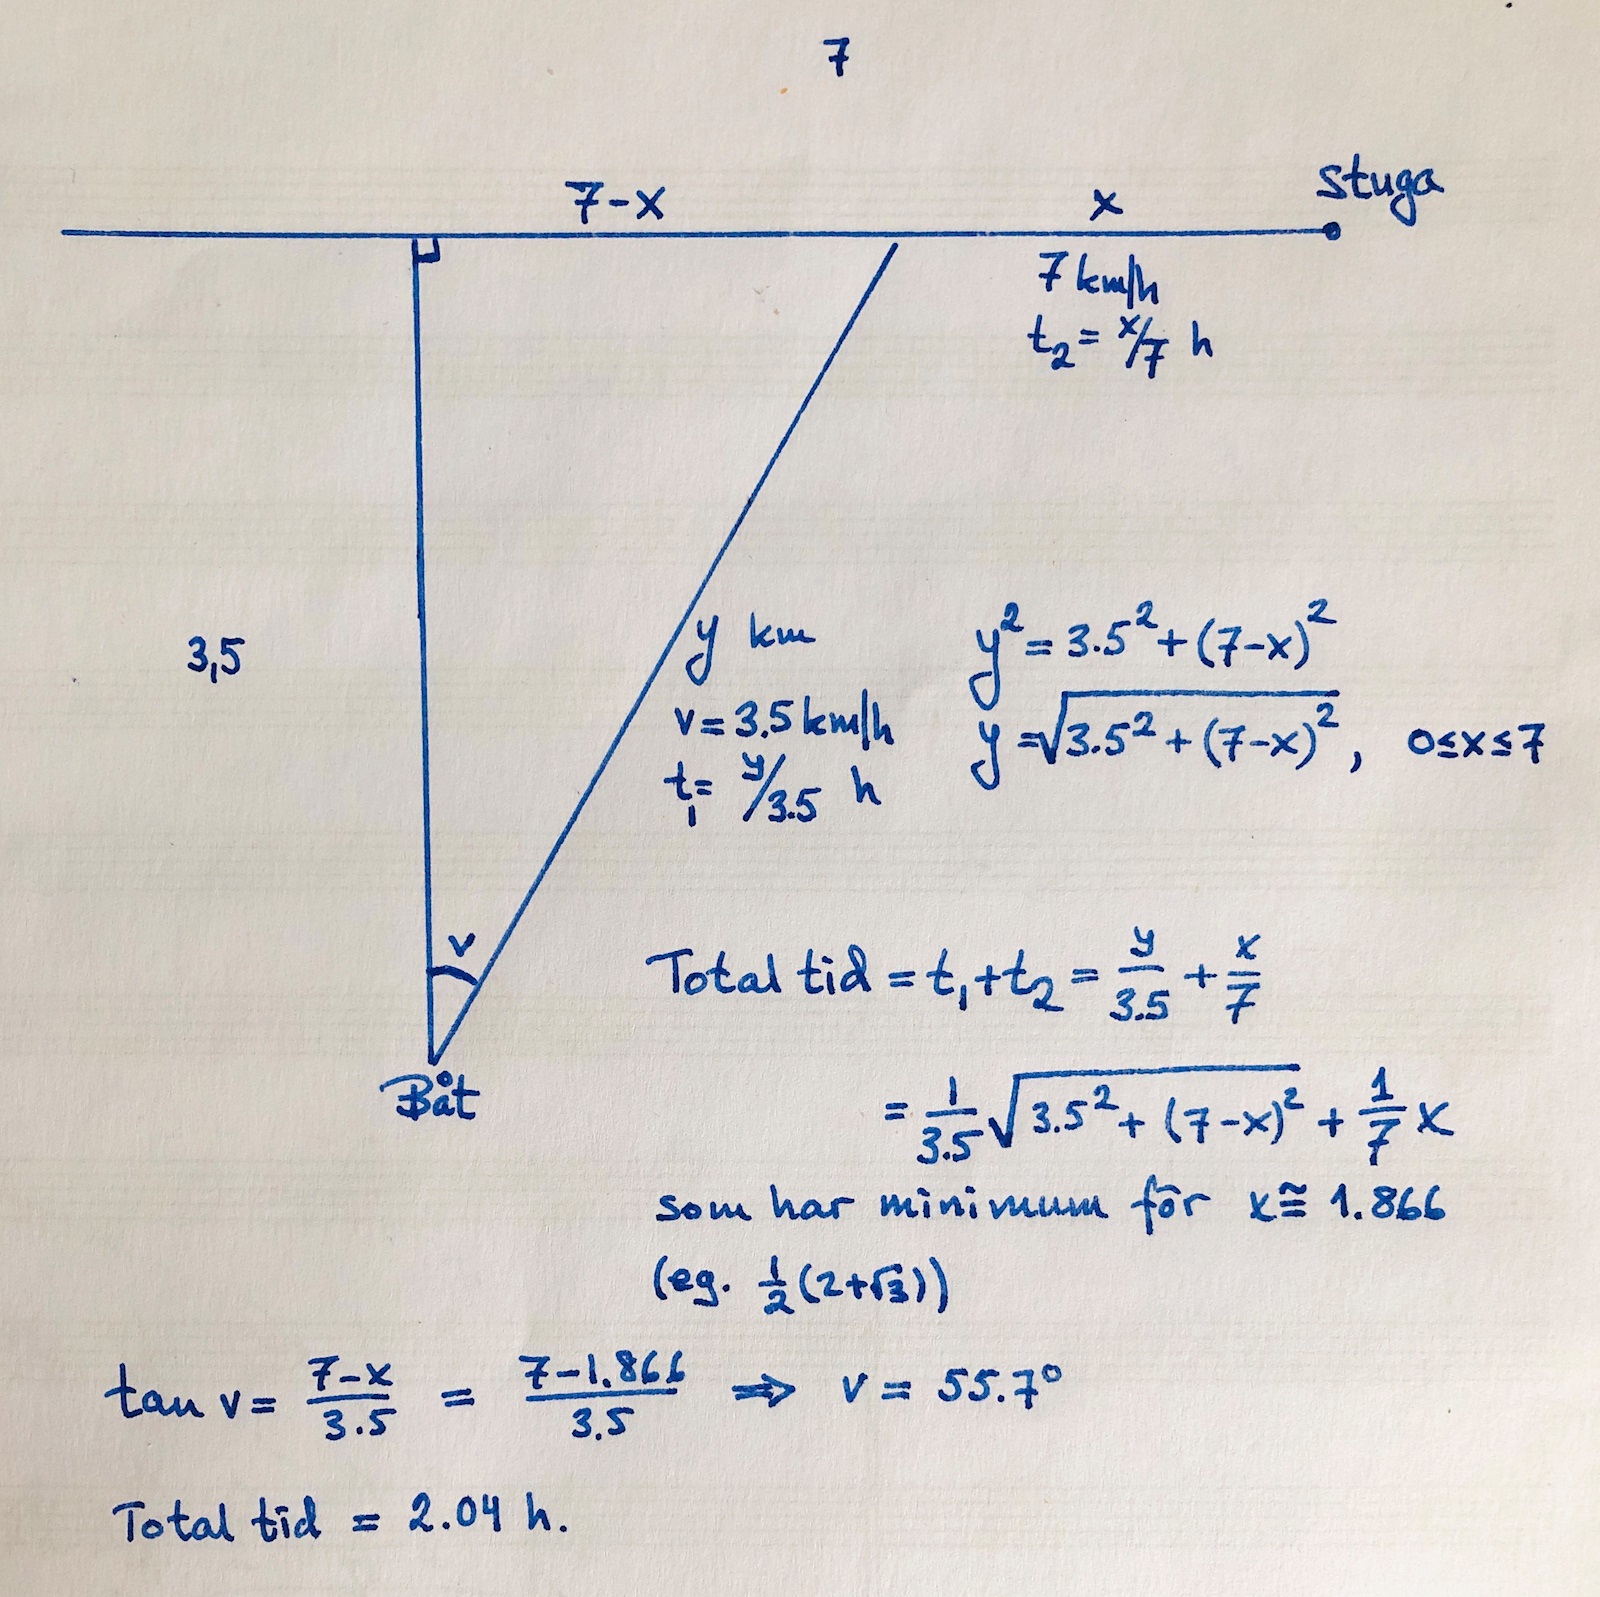 7
stuga
7-x
x
7 km/h
t₂ = x/7 h
3,5
y km
v = 3.5 km/h
t₁ = y/3.5 h
y² = 3.5² + (7-x)²
y = √(3.5² + (7-x)²), 0≤x≤7
v
Båt
Total tid = t₁+t₂ = y/3.5 + x/7
= 1/3.5 √(3.5² + (7-x)²) + 1/7 x
som har minimum för x ≅ 1.866
(eg. 1/2(2+√3))
tan v = (7-x)/3.5 = (7-1.866)/3.5 ⇒ v = 55.7°
Total tid = 2.04 h.